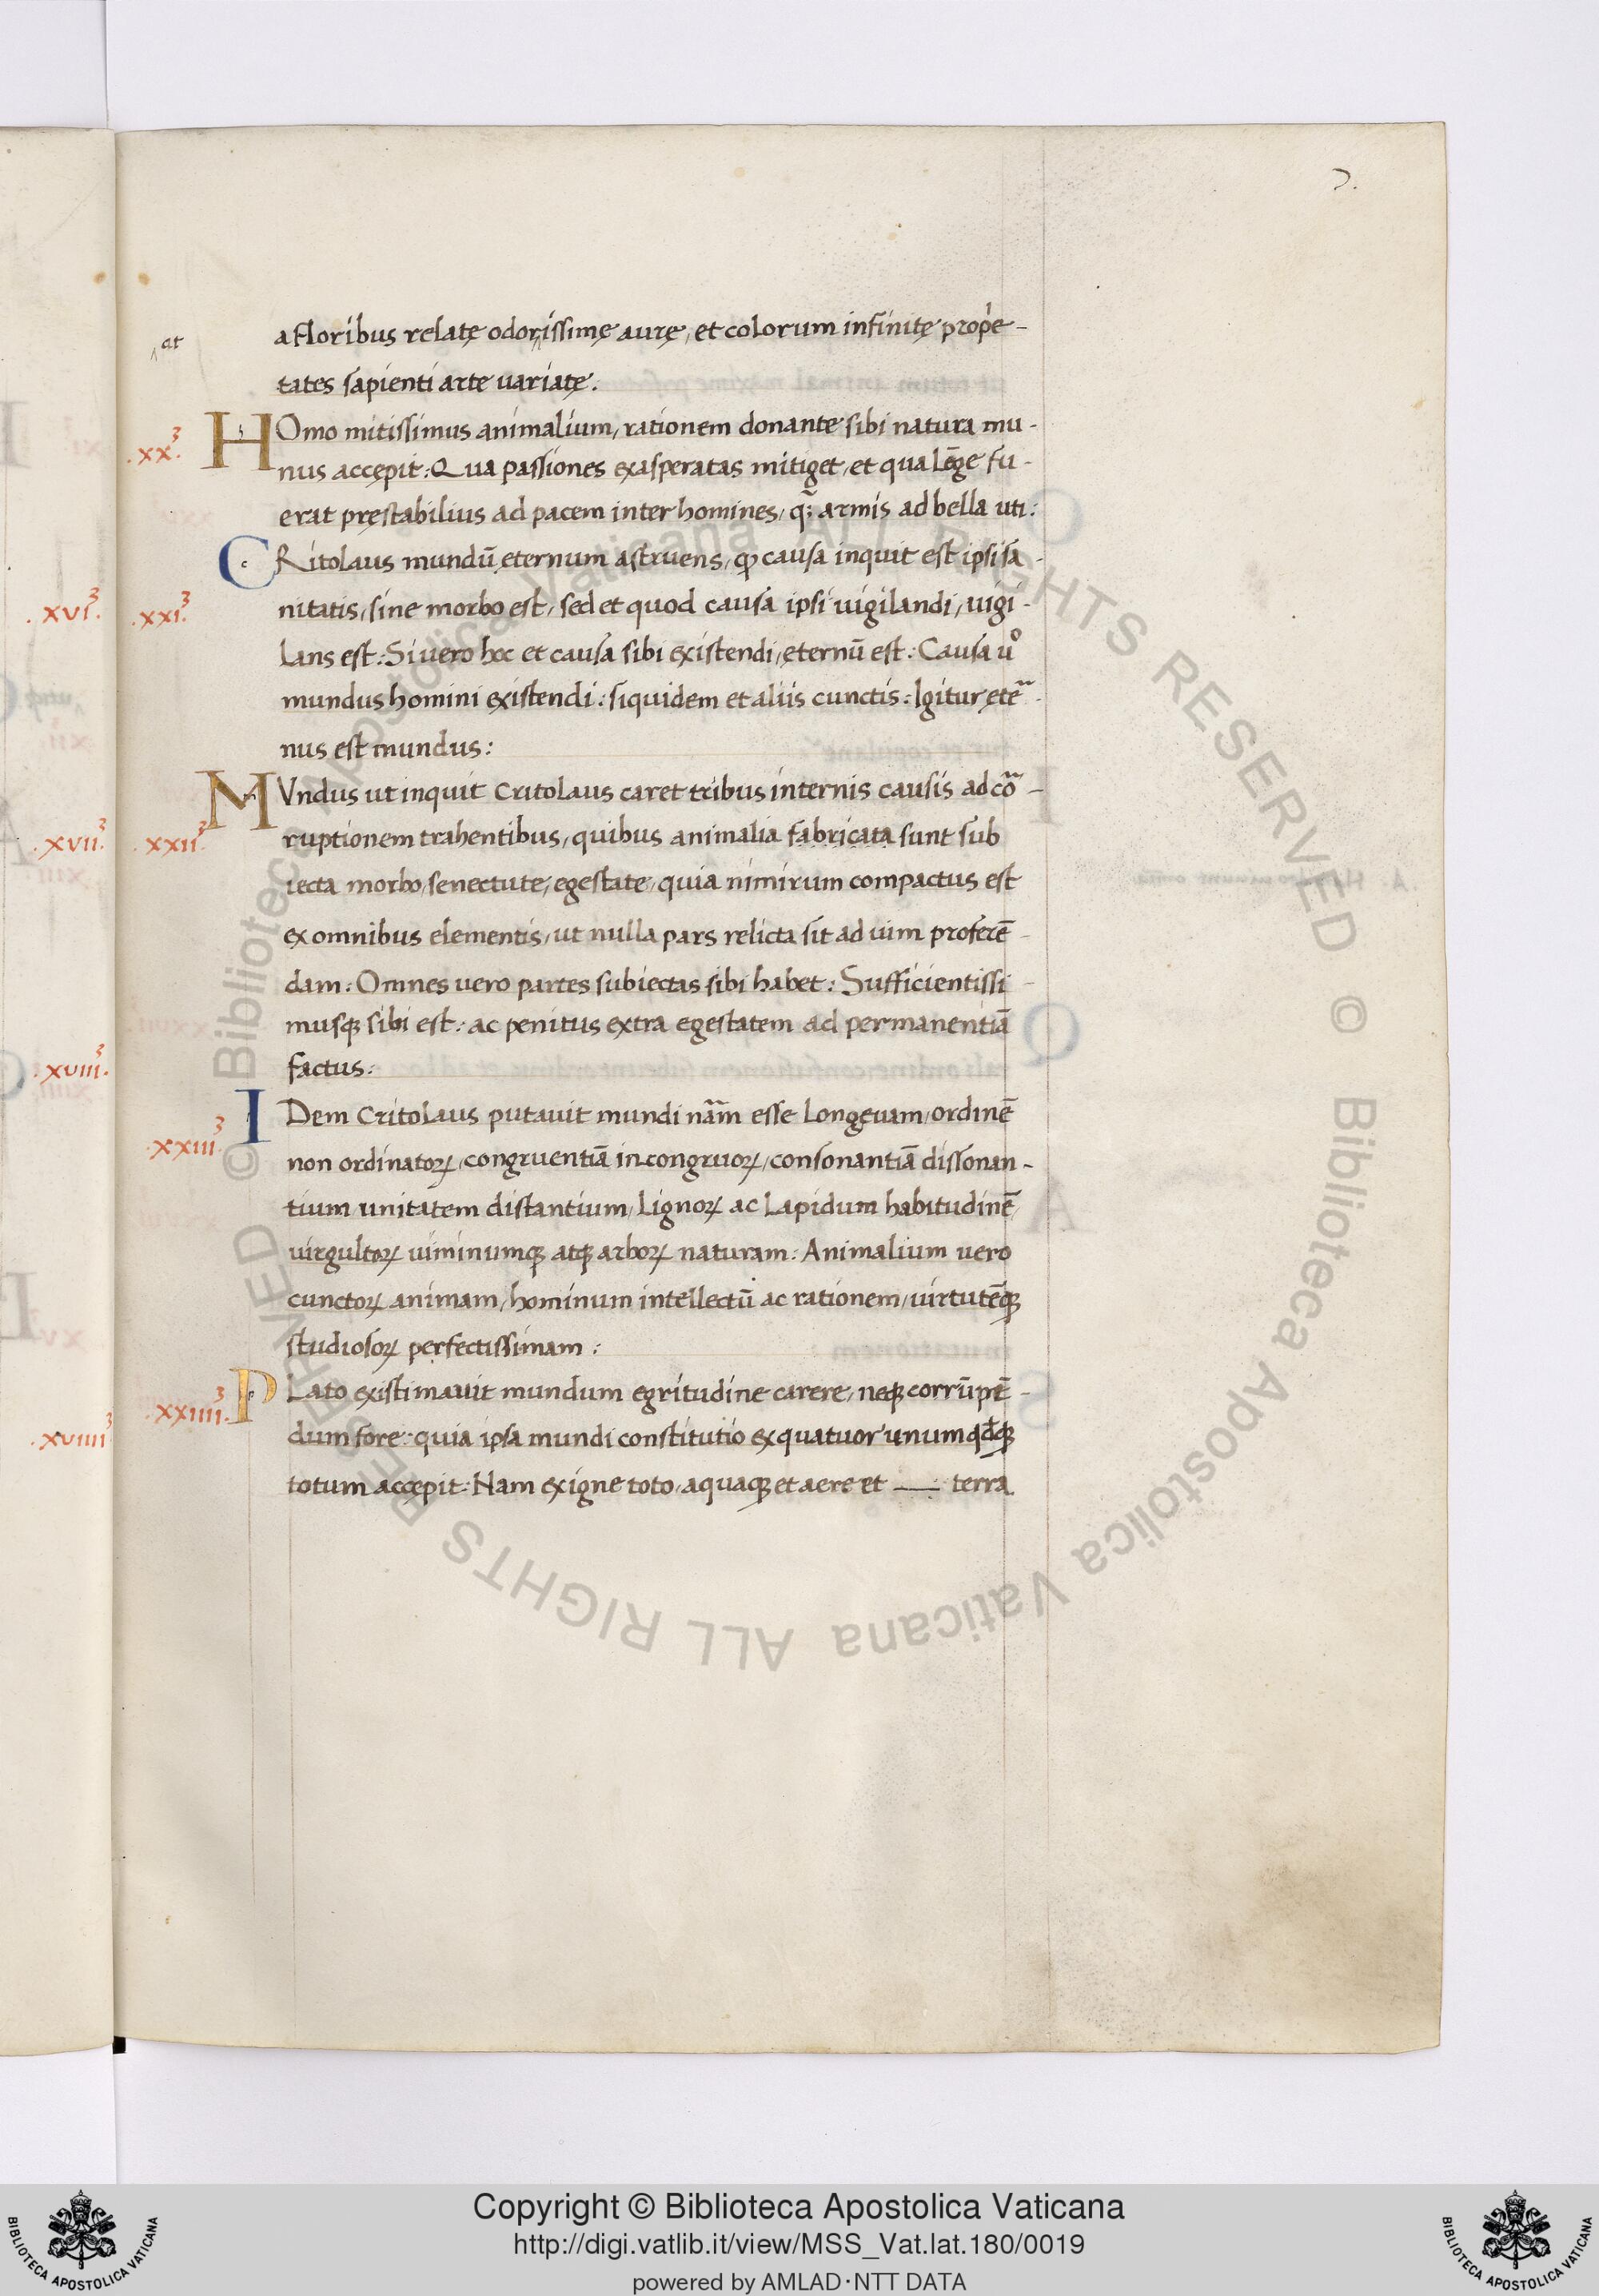 7.
a floribus relatę odorissimę aurę, et colorum infinitę prop'e-
^at
tates sapienti arte variatę.
.xx.³
HOmo mitissimus animalium, rationem donante sibi natura mu-
nus accępit: Qua passiones exasperatas mitiget, et qua lēge fu-
erat pręstabilius ad pacem inter homines, q̄; armis ad bella uti:
CRitolaus mundū ęternum astruens, ꝙ causa inquit est ipsi sa-
.xvi.³ .xxi.³
nitatis, sine morbo est, sed et quod causa ipsi vigilandi, vigi-
lans est: Si vero hoc et causa sibi existendi, ęternū est: Causa uº
mundus homini existendi: siquidem et aliis cunctis: Igitur ęte͂-
nus est mundus:
MVndus ut inquit Critolaus caret tribus internis causis ad co͂-
.xvii.³ .xxii.³
ruptionem trahentibus, quibus animalia fabricata sunt sub
iecta morbo, senectute, egestate, quia nimirum compactus est
ex omnibus elementis, ut nulla pars relicta sit ad vim proferē-
dam: Omnes vero partes subiectas sibi habet: Sufficientissi-
musqꝫ sibi est: ac penitus extra egestatem ad permanentiā
factus:
.xviii.³
IDem Critolaus putavit mundi nām esse longęvam, ordinē
.xxiii.³
non ordinatoꝝ, congruentiā incongruoꝝ, consonantiā dissonan-
tium unitatem distantium, lignoꝝ ac lapidum habitudinē,
virgultoꝝ viminumqꝫ atqꝫ arboꝝ naturam: Animalium vero
cunctoꝝ animam, hominum intellectū ac rationem, virtutēqꝫ
studiosoꝝ perfectissimam:
PLato existimavit mundum egritudine carere, neqꝫ corrūpē-
.xviiii³ .xxiiii.³
dum fore: quia ipsa mundi constitutio ex quatuor unumqđqꝫ
totum accępit: Nam ex igne toto, aquaqꝫ et aere et — : terra
© Biblioteca Apostolica Vaticana ALL RIGHTS RESERVED © Biblioteca Apostolica Vaticana ALL RIGHTS RESERVED
Copyright © Biblioteca Apostolica Vaticana
http://digi.vatlib.it/view/MSS_Vat.lat.180/0019
powered by AMLAD·NTT DATA
BIBLIOTECA APOSTOLICA VATICANA
BIBLIOTECA APOSTOLICA VATICANA